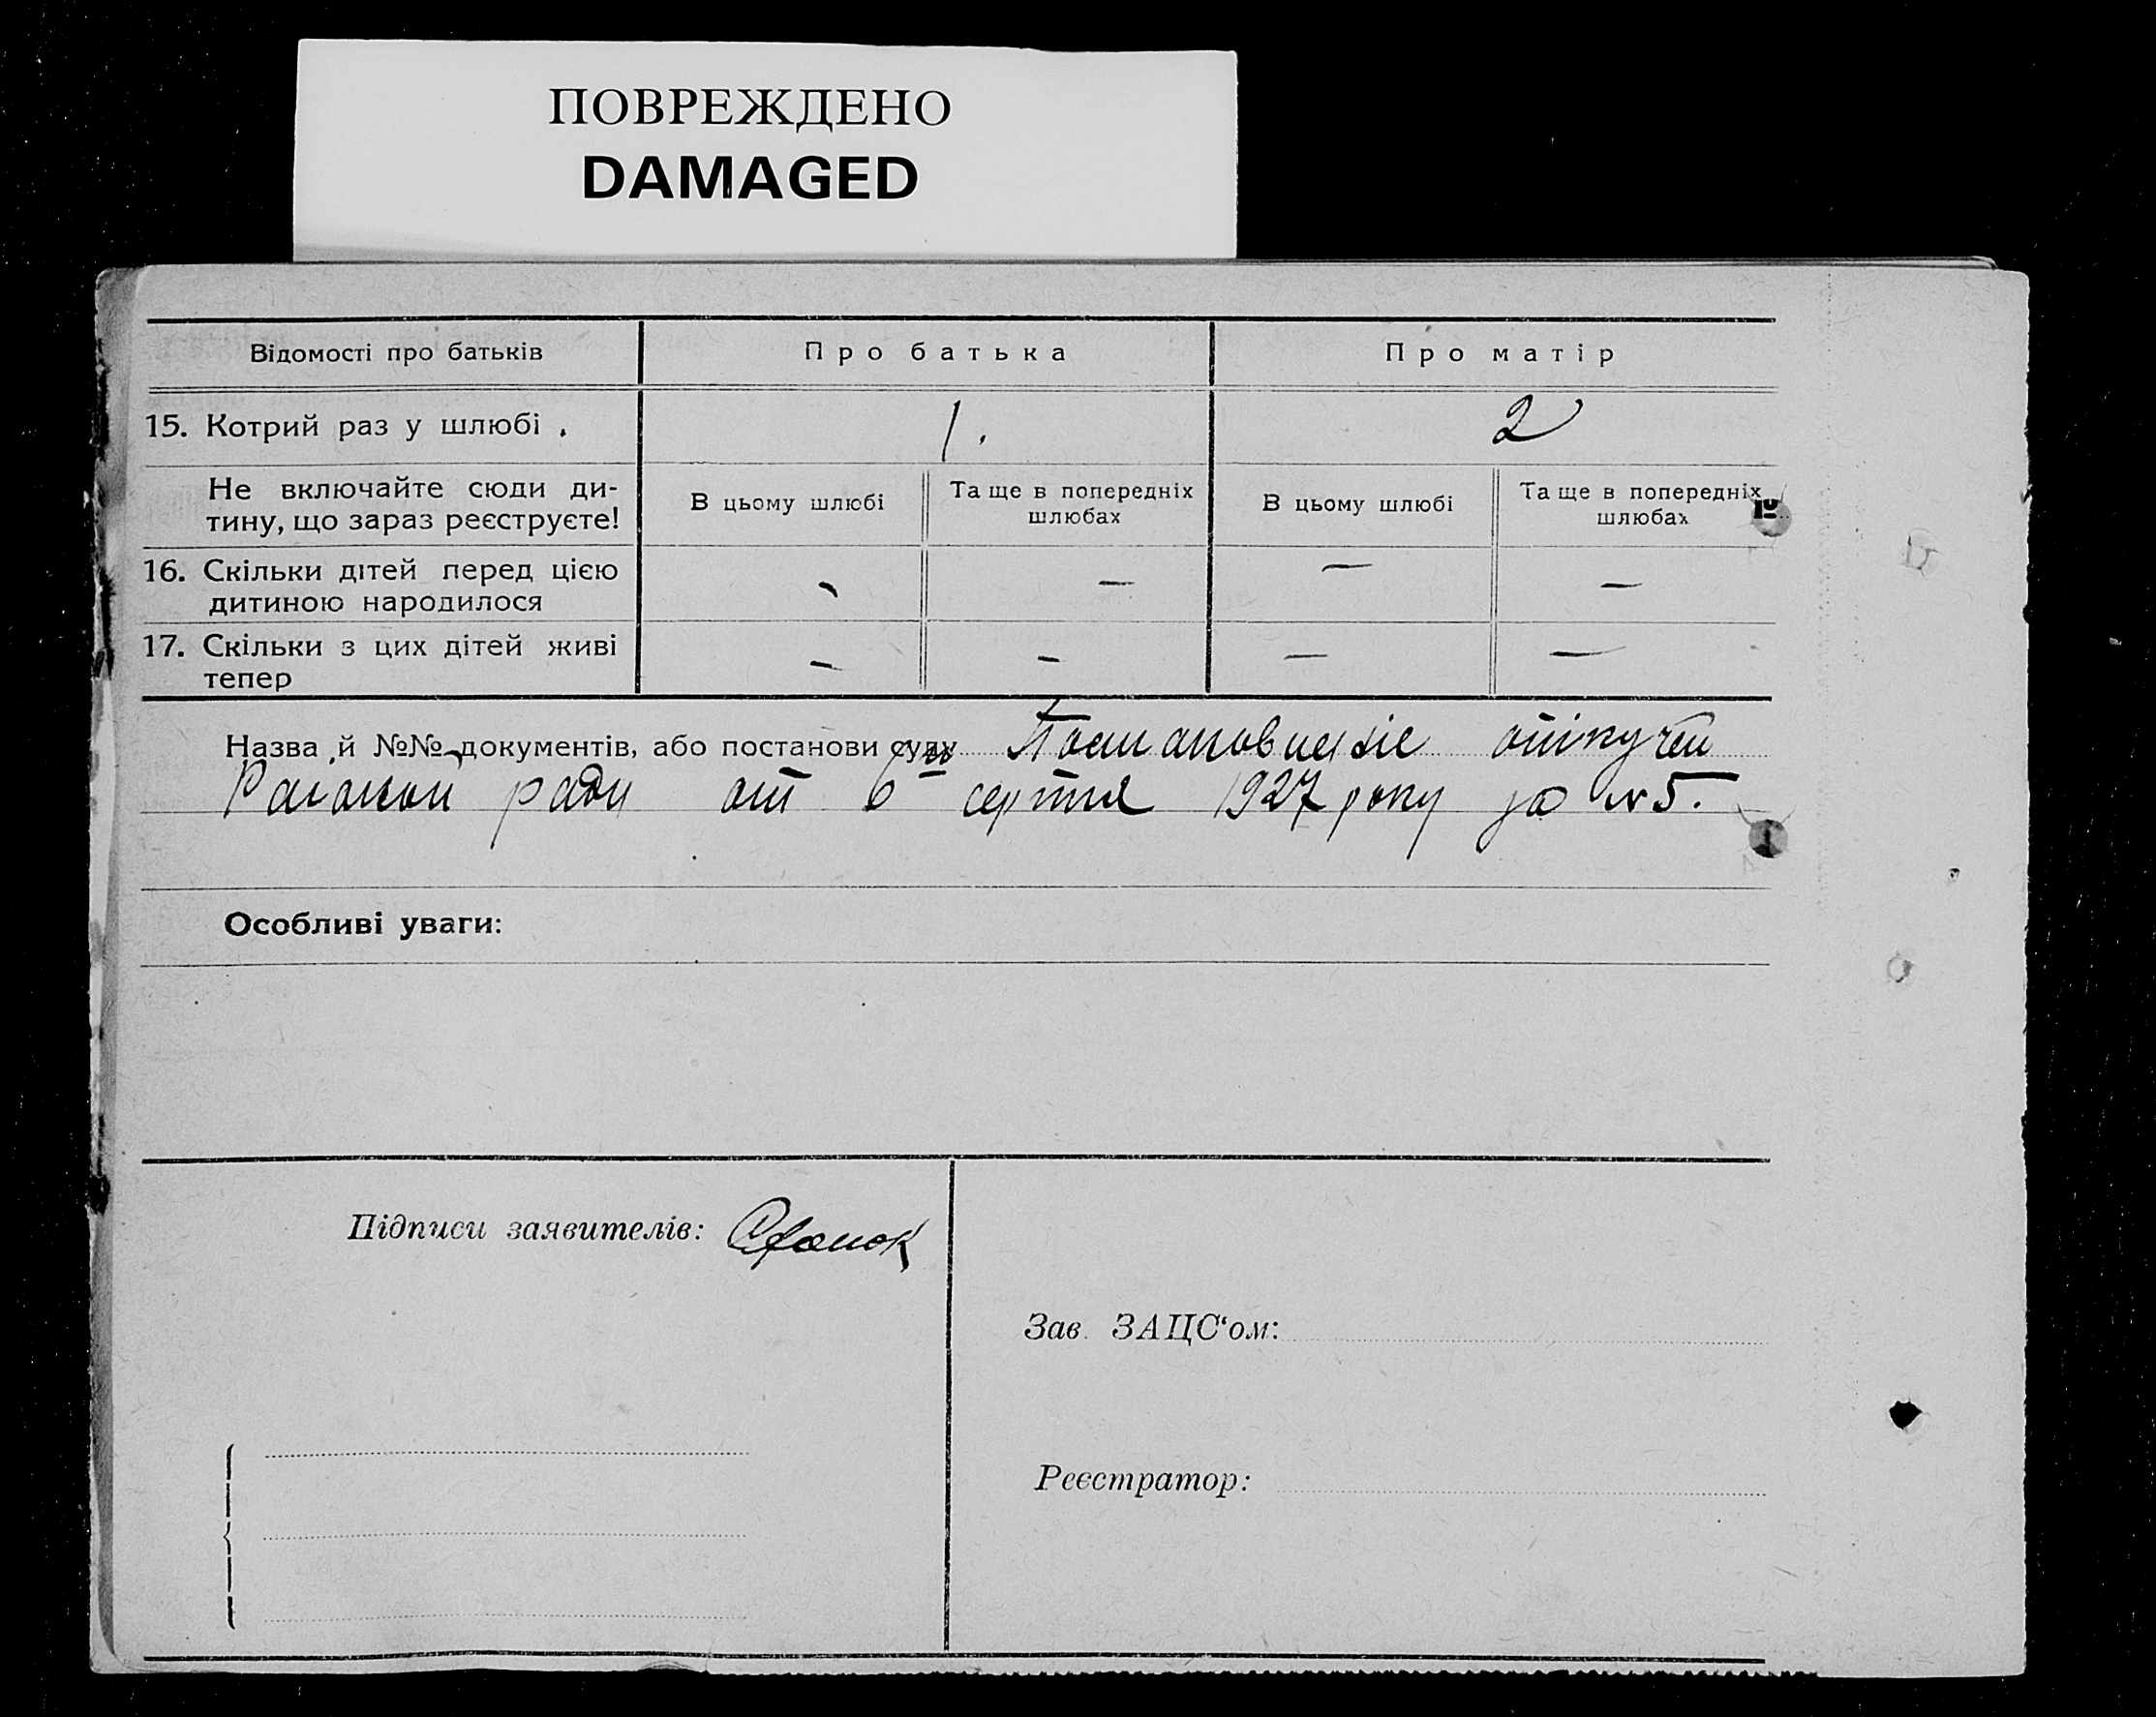 ПОВРЕЖДЕНО
DAMAGED
Відомості про батьків
Про батька
Про матір
15. Котрий раз у шлюбі .
1.
2
Не включайте сюди ди-
тину, що зараз реєструєте!
В цьому шлюбі
Та ще в попередніх
шлюбах
В цьому шлюбі
Та ще в попередніх
шлюбах
16. Скільки дітей перед цією
дитиною народилося
— — — —
17. Скільки з цих дітей живі
тепер
— — — —
Назва й №№ документів, або постанови суду
ради от 6 серпня 1927 року за № 5.
Особливі уваги:
Підписи заявителів:
Зав. ЗАЦС‘ом:
Реєстратор: